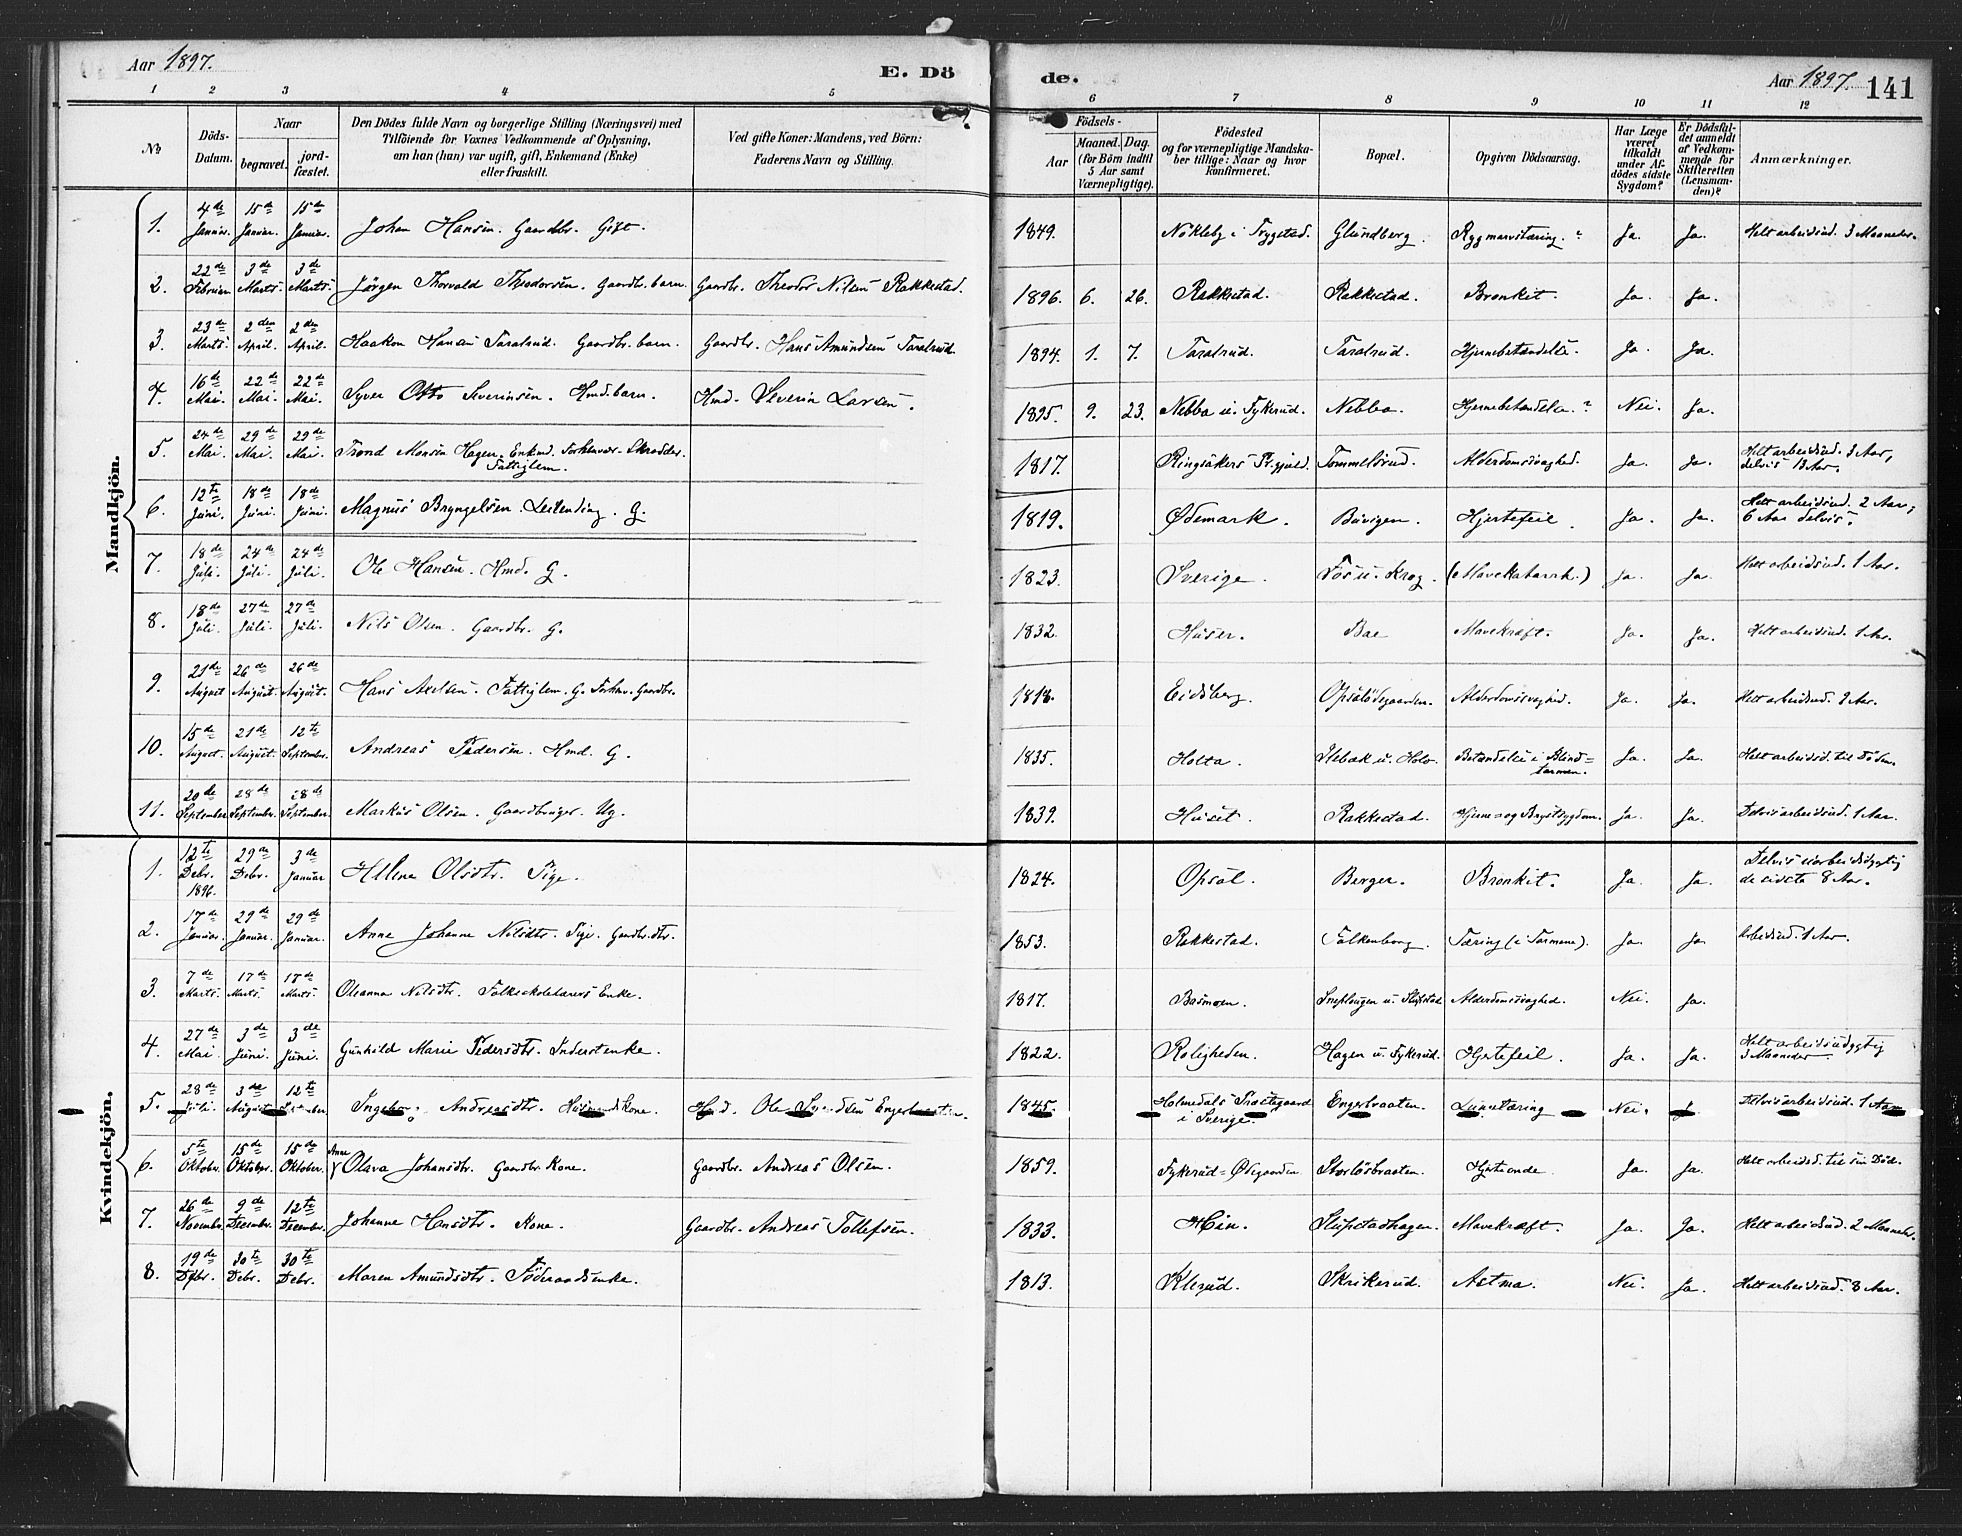 Aar 1897.
E. Dö
de.
Aar 1897.
141
1 2 3 4 5 6 7 8 9 10 11 12
No
Döds-Datum.
Naar
begravet.
jord-fæstet.
Den Dödes fulde Navn og borgerlige Stilling (Næringsvei) med
Tilföiende for Voxnes Vedkommende af Oplysning,
om han (hun) var ugift, gift, Enkemand (Enke)
eller fraskilt.
Ved gifte Koner: Mandens, ved Börn:
Faderens Navn og Stilling.
Födsels-
Aar
Maaned. Dag.
(for Börn indtil
5 Aar samt
Værnepligtige).
Födested
og for værnepligtige Mandska-
ber tillige: Naar og hvor
konfirmeret.
Bopæl.
Opgiven Dödsaarsag.
Har Læge
været
tilkaldt
under Af-
dödes sidste
Sygdom?
Er Dödsfal-
det anmeldt
af Vedkom-
mende for
Skifteretten
(Lensman-
den)?
Anmærkninger.
Mandkjön.
1. 4de Januar. 15de Januar. 15de Januar. Johan Hansen. Gaardbr. Gift. 1849. Nökleby i Trygstad. Glundberg. Rygmarvstæring. ? Ja. Ja. Helt arbeidsud. 3 Maaneder.
2. 22de Februar. 3de Marts. 3de Marts. Jørgen Thorvald Theodorsen. Gaardbr. barn. Gaardbr. Theodor Nilsen Rakkestad. 1896. 6. 26. Rakkestad. Rakkestad. Bronkit. Ja. Ja.
3. 23de Marts. 2den April. 2den April. Haakon Hansen Taralrud. Gaardbr. barn. Gaardbr. Hans Amundsen Taralrud. 1894. 1. 7. Taralrud. Taralrud. Hjernebetændelse. Ja. Ja.
4. 16de Mai. 22de Mai. 22de Mai. Syver Otto Severinsen. Hmd. barn. Hmd. Severin Larsen. 1895. 9. 23. Nebba u. Tykerud. Nebba. Hjernebetændelse. ? Nei. Ja.
5. 24de Mai. 29de Mai. 29de Mai. Trond Monsen Hagen. Enkmd. Forhenvær. Skrædder. Fattiglem. 1817. Ringsakers Pr.gjeld. Tommelsrud. Alderdomssvaghed. Ja. Ja. Helt arbeidsud. 3 Aar, delvis 13 Aar.
6. 12te Juni. 18de Juni. 18de Juni. Magnus Bryngelsen. Leilending. G. 1819. Ødemark. Buvigen. Hjertefeil. Ja. Ja. Helt arbeidsud. 2 Aar, 6 Aar delvis.
7. 18de Juli. 24de Juli. 24de Juli. Ole Hansen. Hmd. G. 1823. Sverige. Fos u. Krog. (Mavekatarrh.) Ja. Ja. Helt arbeidsud. 1 Aar.
8. 18de Juli. 27de Juli. 27de Juli. Nils Olsen. Gaardbr. G. 1832. Huser. Bae Mavekræft. Ja. Ja. Helt arbeidsud. 1 Aar.
9. 21de August 26de August. 26de August. Hans Axelsen. Fattiglem. G. Forhenv. Gaardbr. 1818. Eidsberg. Opsalödegaarden. Alderdomssvaghed. Ja. Ja. Helt arbeidsud. Aar.
10. 15de August. 21de August. 12te September. Andreas Pedersen. Hmd. G. 1835. Holta. Ilebæk u. Holv. Betændelse i Blindtarmen. Ja. Ja. Helt arbeidsd. til Döden.
11. 20de September 28de September. 28de September. Markus Olsen. Gaardbruger. Ug. 1839. Huset. Rakkestad. Hjerne- og Brystsygdom. Ja. Ja. Delvis arbeidsud. 1 Aar.
Kvindekjön.
1. 12te Debr. 1896. 29de Debr. 3de Januar Helene Olsdtr. Pige. 1824. Opsal. Berger. Bronkit. Ja. Ja. Delvis uarbeidsdygtig de sidste 8 Aar.
2. 17de Januar. 29de Januar. 29de Januar. Anne Johanne Nilsdtr. Pige. Gaardbr. dtr. 1853. Rakkestad. Falkenborg. Tæring (i Tarmene). Ja. Ja. Arbeidsud. 1 Aar.
3. 7de Marts. 17de Marts. 17de Marts. Oleanna Nilsdtr. Folkeskolelærers Enke. 1817. Basmoen. Sneplougen u. Slupstad Alderdomssvaghed. Nei. Ja.
4. 27de Mai. 3de Juni. 3de Juni. Gunhild Marie Pedersdtr. Inderstenke. 1822. Roligheden. Hagen u. Tykerud. Hjertefeil. Ja. Ja. Helt arbeidsudygtig 3 Maaneder
5. 28de Juli. 3de August 12te September. Ingeborg Andreasdtr. Husmands Kone. Hmd. Ole Svendsen Engerbraaten. 1845. Holmedals Præstegaard i Sverige. Engerbraaten. Lungetæring Nei. Delvis arbeidsud. 1 Aar.
6. 5te Oktober. 15de Oktober. 15de Oktober. Anne Olava Johansdtr. Gaardbr. Kone. Gaardbr. Andreas Olsen. 1859. Tykerud-Ødegaarden Storlösbraaten. Hjerteonde. Ja. Ja. Helt arbeidsd. til sin Död.
7. 26de Novembr. 9de Decembr. 12te Decembr. Johanne Hansdtr. Kone. Gaardbr. Andreas Tollefsen. 1833. Slupstadhagen. Mavekræft. Ja. Ja. Helt arbeidsud. 2 Maaneder.
8. 19de Debr. 30te Debr. 30te Debr. Maren Amundsdtr. Föderaadsenke. 1813. Klerud. Skrikerud. Astma. Nei. Ja. Helt arbeidsud. 8 Aar.